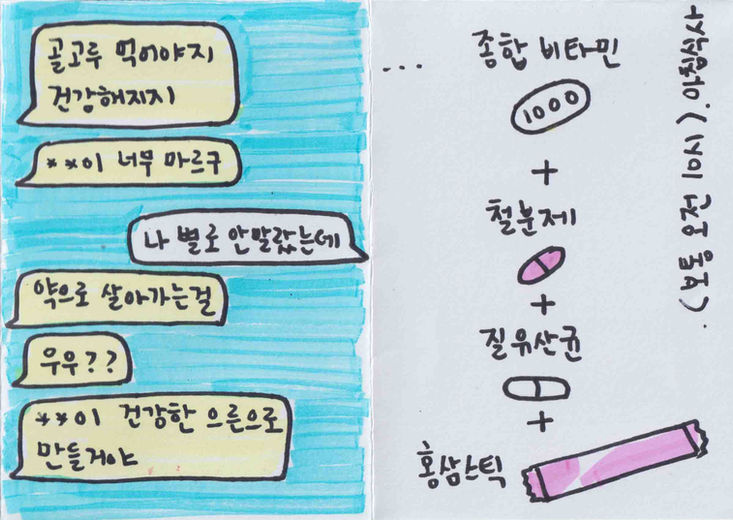 골고루 먹어야지
건강해지지
**이 너무 마르구
나 별로 안말랐는데
약으로 살아가는걸
우우??
**이 건강한 으른으로
만들거야
...
종합 비타민
1000
+
철분제
+
질유산균
+
홍삼스틱
(보통 오전 10시). 아침식사